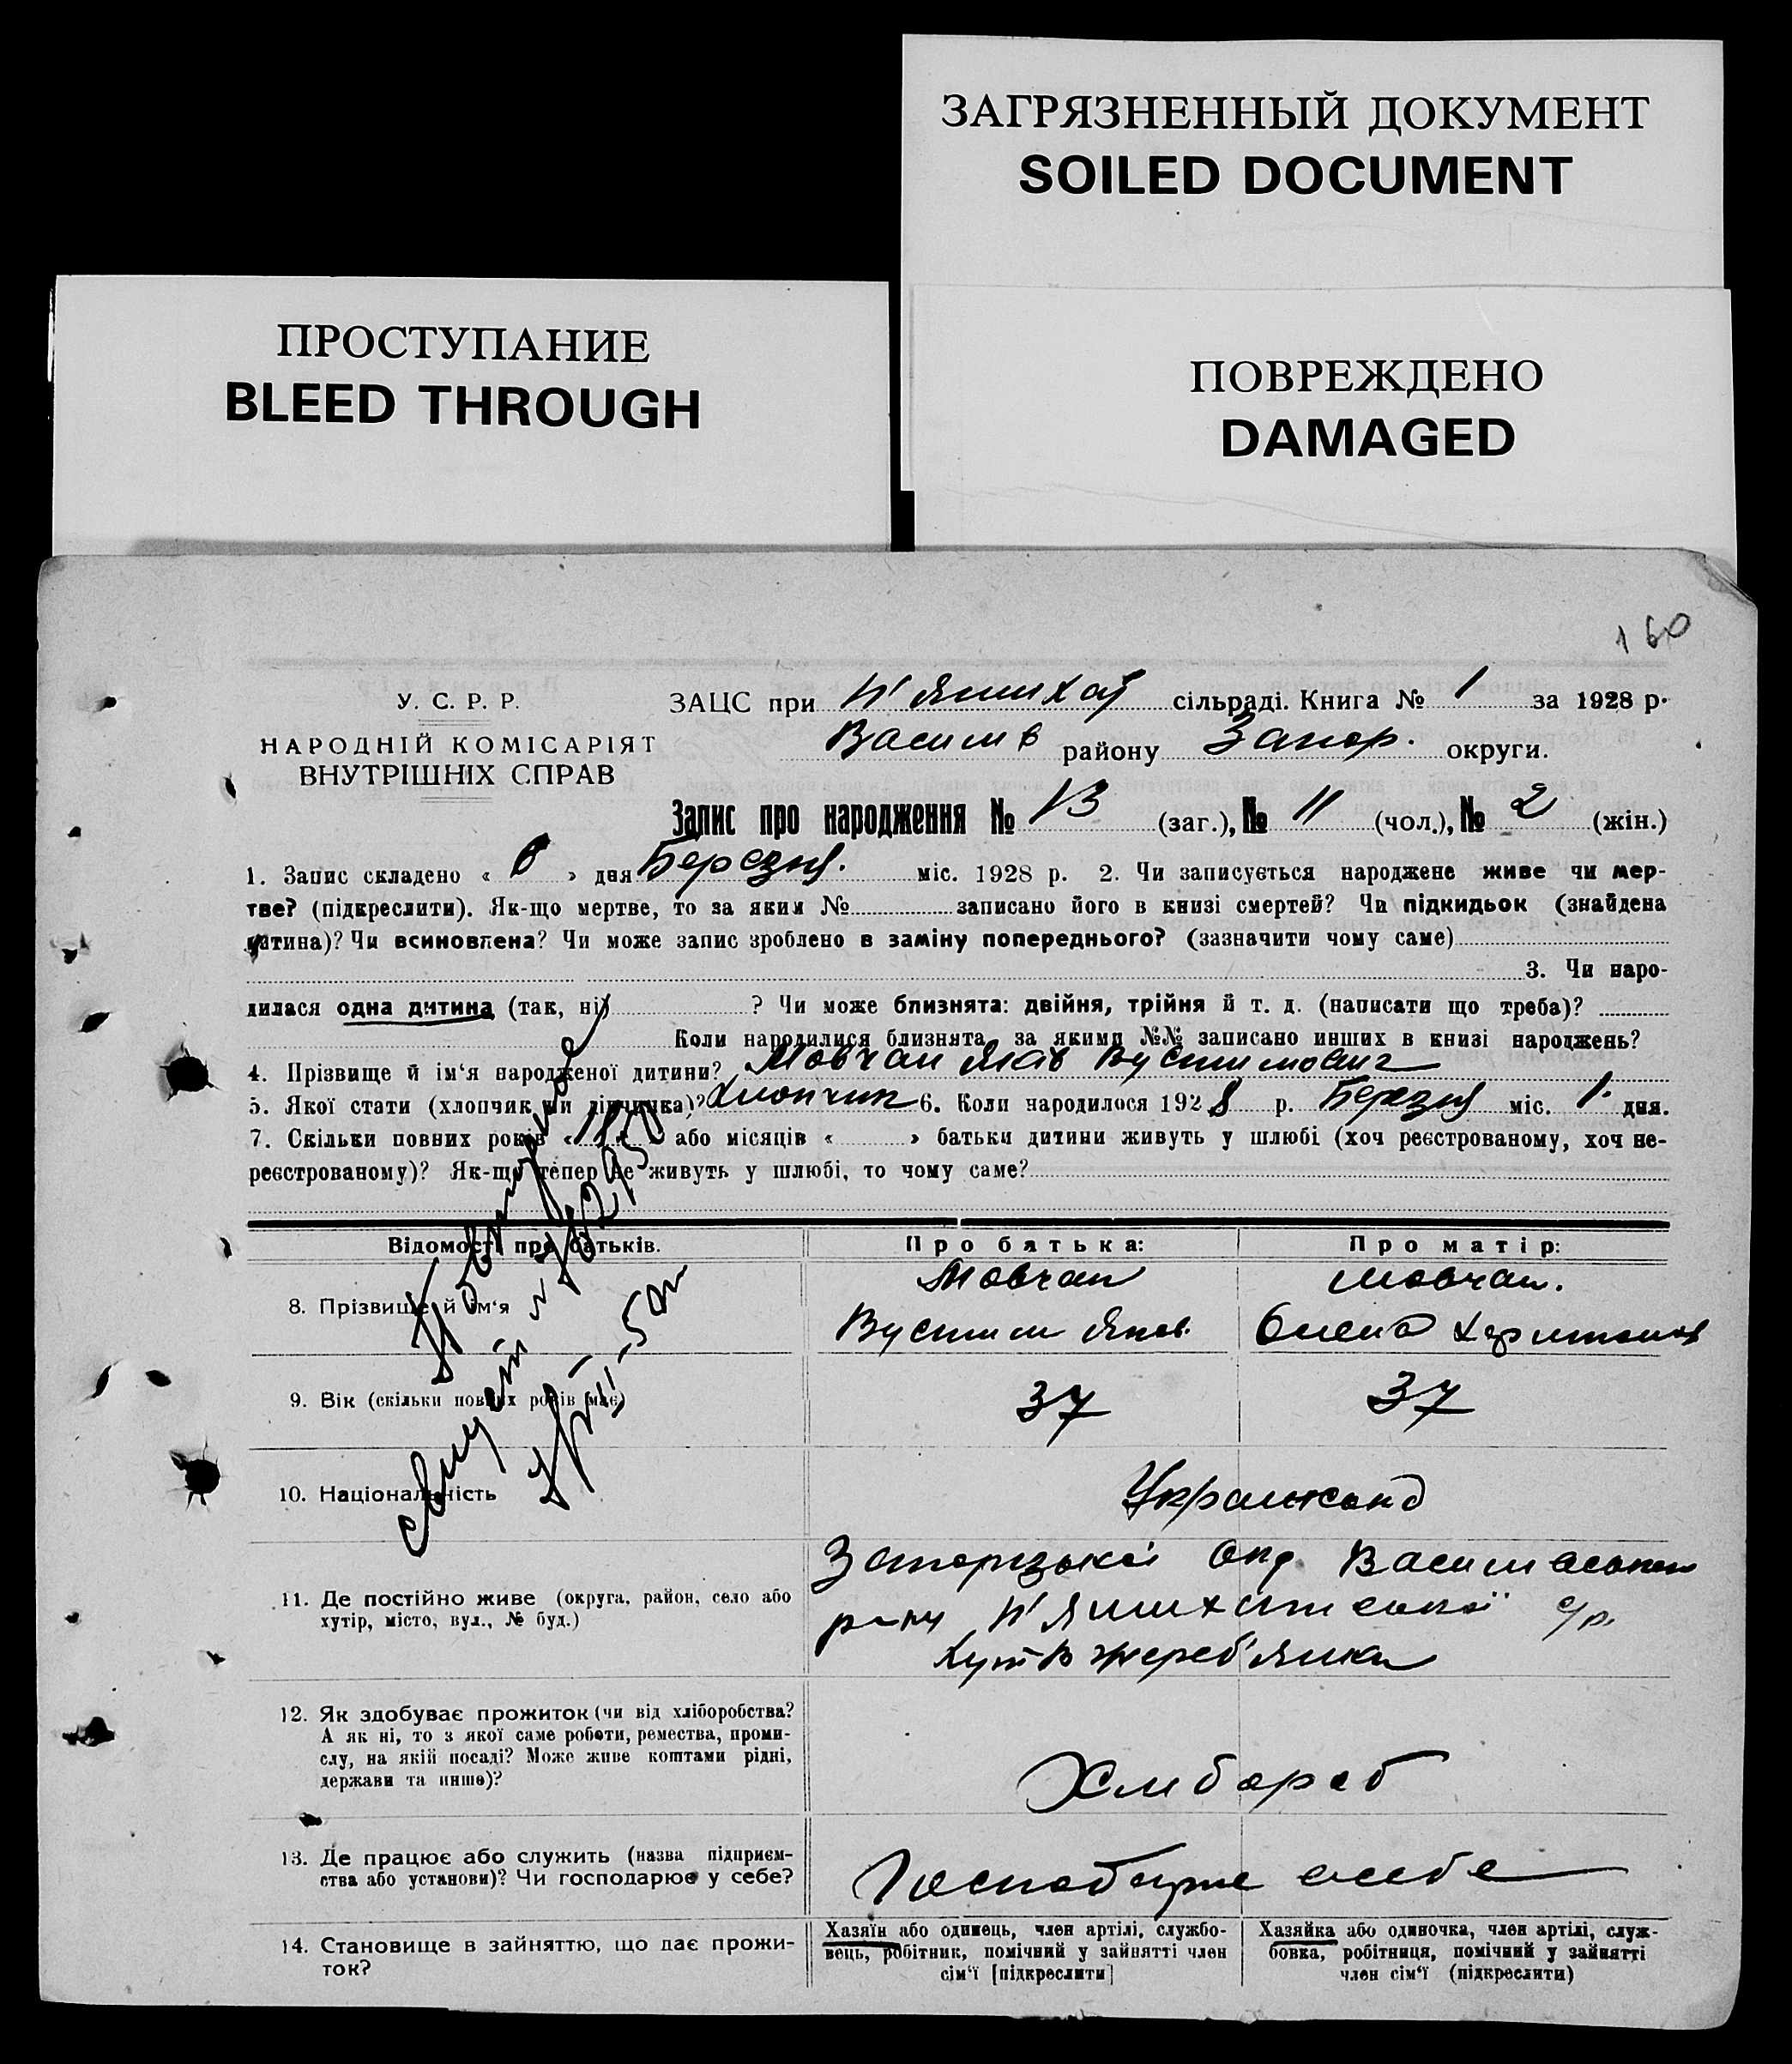 ЗАГРЯЗНЕННЫЙ ДОКУМЕНТ
SOILED DOCUMENT
ПРОСТУПАНИЕ
BLEED THROUGH
ПОВРЕЖДЕНО
DAMAGED
160
У. С. Р. Р.
НАРОДНІЙ КОМІСАРІЯТ
ВНУТРІШНІХ СПРАВ
ЗАЦС при П'ятихат сільраді. Книга № 1 за 1928 р.
Василів району Запор. округи.
Запис про народження № 13 (заг.), № 11 (чол.), № 2 (жін.)
1. Запис складено « 6 » дня Березня. міс. 1928 р. 2. Чи записується народжене живе чи мер-
тве? (підкреслити). Як-що мертве, то за яким № записано його в книзі смертей? Чи підкидьок (знайдена
дитина)? Чи всиновлена? Чи може запис зроблено в заміну попереднього? (зазначити чому саме)
3. Чи наро-
дилася одна дитина (так, ні) ? Чи може близнята: двійня, трійня й т. д. (написати що треба)?
Коли народилися близнята, за якими №№ записано инших в книзі народжень?
4. Прізвище й ім'я народженої дитини? Мовчан Яків Вустимович
5. Якої стати (хлопчик чи дівчинка)? Хлопчик 6. Коли народилося 1928 р. Березня міс. 1. дня.
7. Скільки повних років « 18 » або місяців « » батьки дитини живуть у шлюбі (хоч реєстрованому, хоч не-
реєстрованому)? Як-що тепер не живуть у шлюбі, то чому саме?
Відомості про батьків.
Про батька:
Про матір:
8. Прізвище й ім'я
Мовчан
Вустим Яков.
Мовчан.
Олена Харитонов
9. Вік (скільки повних років має)
37
37
10. Національність
11. Де постійно живе (округа, район, село або
хутір, місто, вул., № буд.)
Запорізької Окр Василівського
р-ну П'ятихатської с/р.
хут Жереб'янка
12. Як здобуває прожиток (чи від хліборобства?
А як ні, то з якої саме роботи, ремества, проми-
слу, на якій посаді? Може живе коштами рідні,
держави та инше)?
Хлібороб
13. Де працює або служить (назва підприєм-
ства або установи)? Чи господарює у себе?
Господарює себе
14. Становище в зайняттю, що дає прожи-
ток?
Хазяїн або одинець, член артілі, службо-
вець, робітник, помічний у зайнятті член
сім'ї [підкреслити]
Хазяйка або одиночка, член артілі, служ-
бовка, робітниця, помічний у зайнятті
член сім'ї (підкреслити)